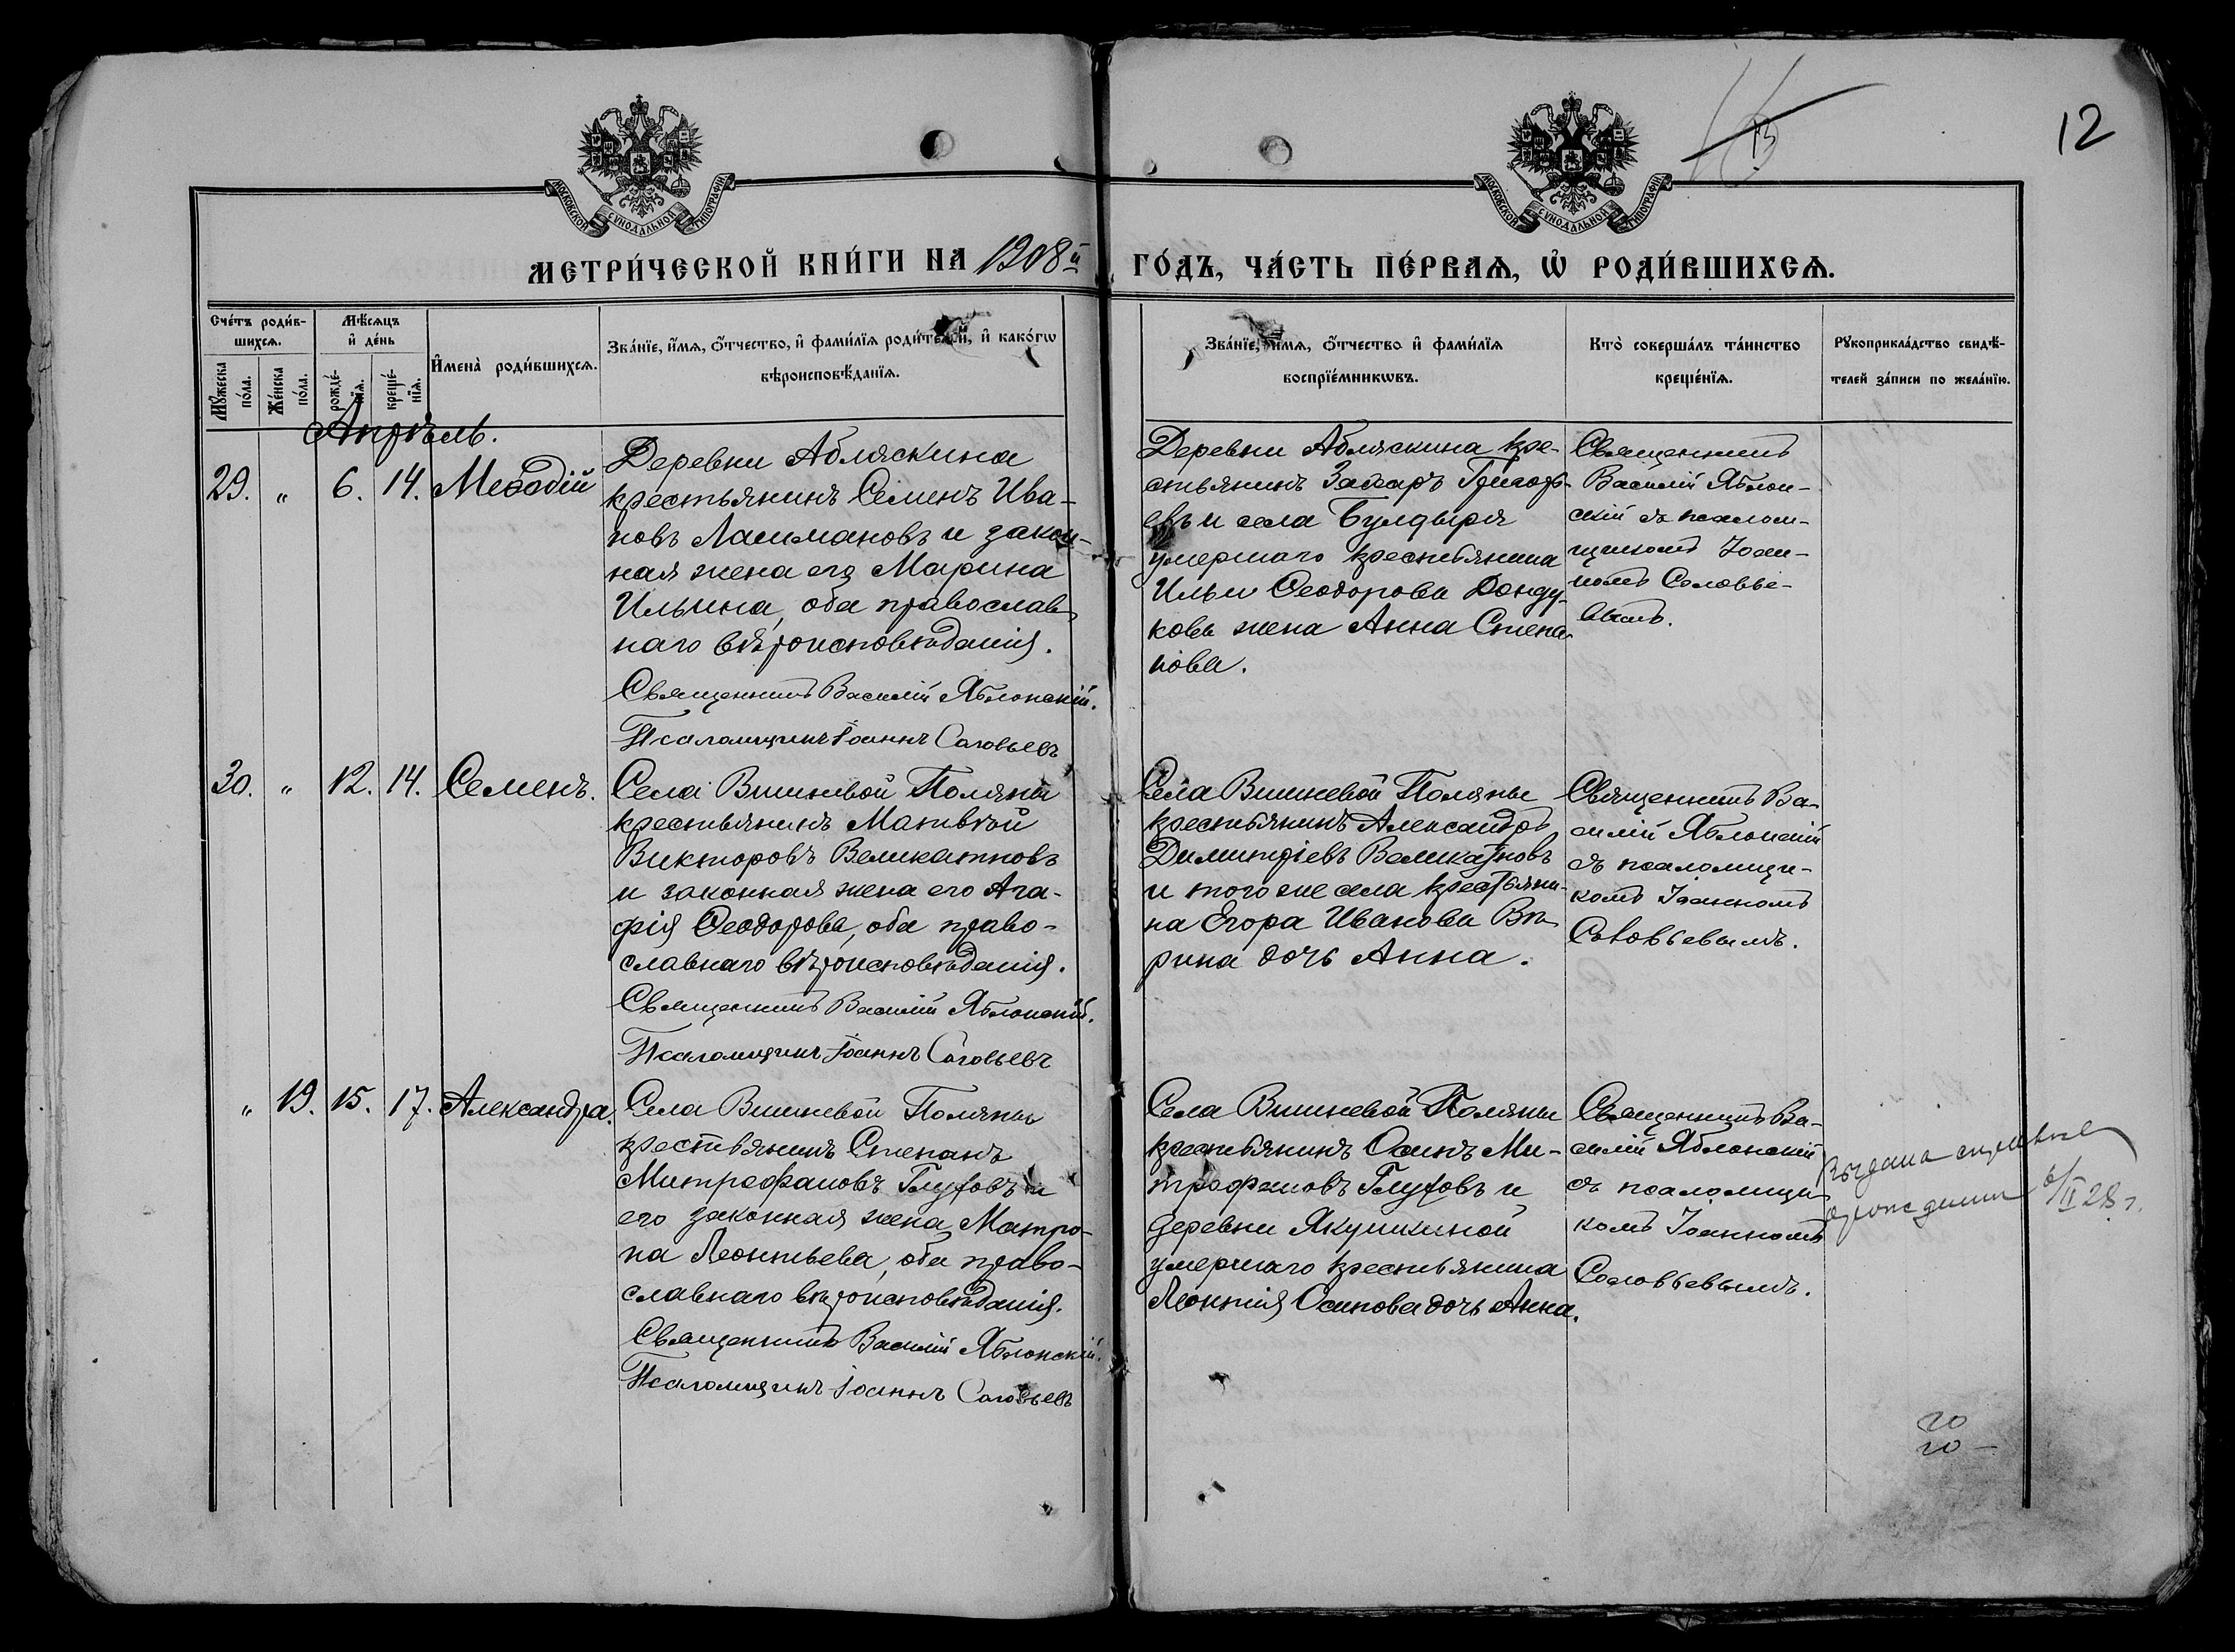 12
МОСКОВСКОЙ СУНОДАЛЬНОЙ ТИПОГРАФІИ
МОСКОВСКОЙ СУНОДАЛЬНОЙ ТИПОГРАФІИ
МЕТРИ́ЧЕСКОЙ КНИ́ГИ НА 1908й ГО́ДЪ, ЧА́СТЬ ПЕ́РВАѦ, Ѡ҆ РОДИ́ВШИХСѦ.
Сче́тъ роди́в-
шихсѧ.
Мꙋ́жеска по́ла.
Же́нска по́ла.
Мѣ́сѧцъ
и҆ де́нь
рожде́-
нїѧ.
креще́-
нїѧ.
И҆мена̀ роди́вшихсѧ.
Зва́нїе, и҆́мѧ, ѻ҆́тчество, и҆ фами́лїѧ роди́телей, и҆ како́гѡ
вѣроисповѣ́данїѧ.
Зва́нїе, и҆́мѧ, ѻ҆́тчество и҆ фами́лїѧ
воспрїе́мникѡвъ.
Кто̀ соверша́лъ та́инство
креще́нїѧ.
Рꙋкоприкла́дство свидѣ́-
телей за́писи по жела́нїю.
Апрѣль.
29. " 6. 14. Меѳодій
Деревни Абляскина
крестьянинъ Семенъ Ива-
новъ Лашмановъ и закон-
ная жена его Марина
Ильина, оба православ-
наго вѣроисповѣданія.
Священникъ Василій Яблонскій.
Псаломщикъ Іоаннъ Соловьевъ
Деревни Абляскина кре-
стьянинъ Захаръ Григорь-
евъ и села Булдыря
умершаго крестьянина
Ильи Ѳеодорова Донду-
кова жена Анна Степа-
нова.
Священникъ
Василій Яблон-
скій съ псалом-
щикомъ Іоан-
номъ Соловье-
вымъ.
30. " 12. 14. Семенъ.
Села Вишневой Поляны
крестьянинъ Матвѣй
Викторовъ Великатновъ
и законная жена его Ага-
фія Ѳеодорова, оба право-
славнаго вѣроисповѣданія.
Священникъ Василій Яблонскій.
Псаломщикъ Іоаннъ Соловьевъ
Села Вишневой Поляны
крестьянинъ Александръ
Димитріевъ Великатновъ
и того же села крестьяни-
на Егора Иванова Вы-
рина дочь Анна.
Священникъ Ва-
силій Яблонскій
съ псаломщи-
комъ Іоанномъ
Соловьевымъ.
" 19. 15. 17. Александра.
Села Вишневой Поляны
крестьянинъ Степанъ
Митрофановъ Глуховъ и
его законная жена Матро-
на Леонтьева, оба право-
славнаго вѣроисповѣданія.
Священникъ Василій Яблонскій.
Псаломщикъ Іоаннъ Соловьевъ
Села Вишневой Поляны
крестьянинъ Осипъ Ми-
трофановъ Глуховъ и
деревни Якушкиной
умершаго крестьянина
Леонтія Осипова дочь Анна.
Священникъ Ва-
силій Яблонскій
съ псаломщи-
комъ Іоанномъ
Соловьевымъ.
Выдана справка
о рождении 6/II 28 г.
20
20 -